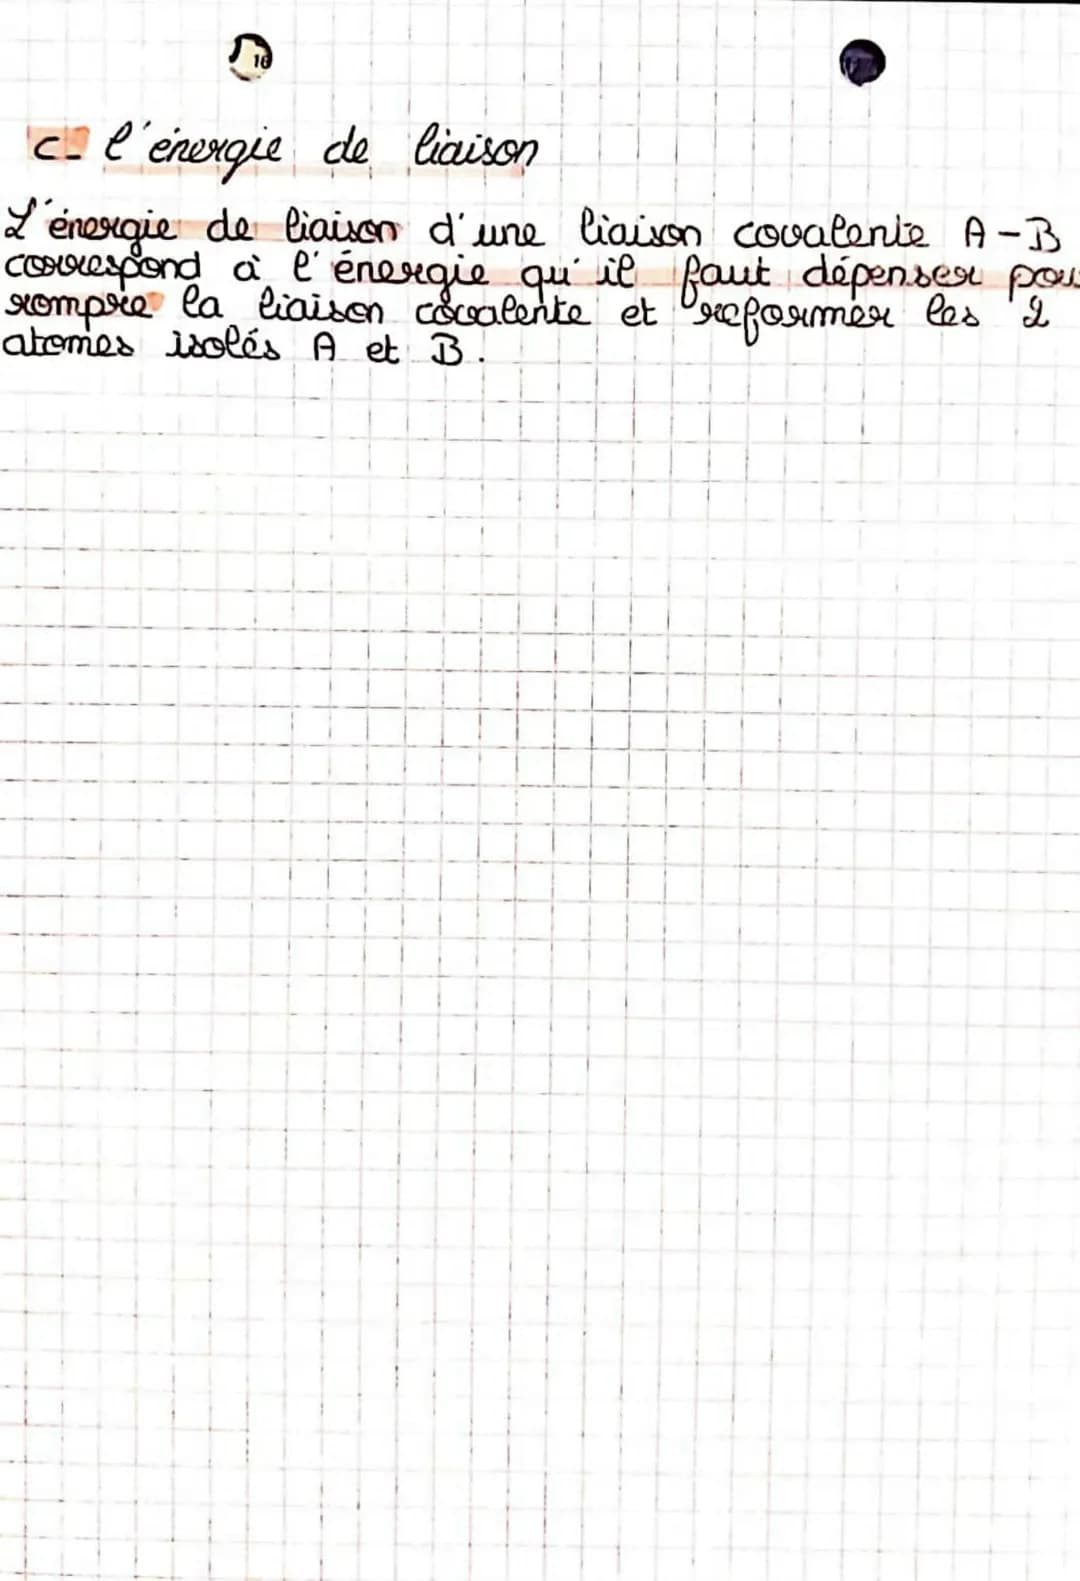 16
c- l'énergie de liaison
L'énergie de liaison d'une liaison covalente A-B
correspond à l'énergie qu'il faut dépenser pou
rompre la liaison covalente et reformer les 2
atomes isolés A et B.